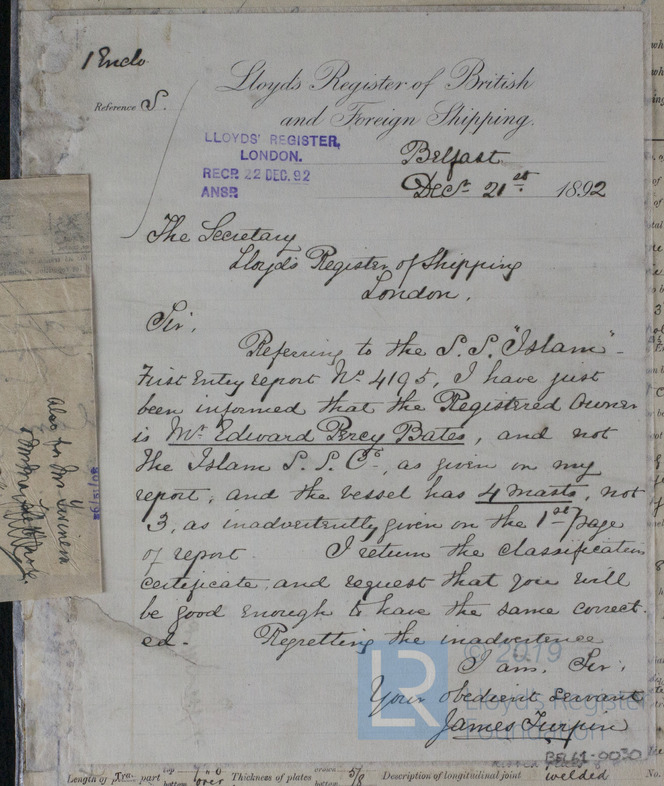 1 Enclo
Lloyd's Register of British
and Foreign Shipping.
Reference S.
LLOYDS' REGISTER,
LONDON.
RECD. 22 DEC. 92
ANSD.
Belfast
Decr. 21st 1892
The Secretary
Lloyd's Register of Shipping
London.
Sir,
Referring to the S.S. "Islam" -
First Entry report No. 4195, I have just
been informed that the Registered Owner
is Mr. Edward Percy Bates, and not
the Islam S.S. Co., as given on my
report; and the vessel has 4 masts, not
3, as inadvertently given on the 1st page
of report. I return the classification
certificate, and request that you will
be good enough to have the same correct-
ed. Regretting the inadvertence
I am, Sir,
Your obedient servant
James Turpin
© 2019
LR
Lloyd's Register
Foundation
BEL61-0030
Also for Mr
Length of part top bottom over Thickness of plates crown bottom 5/8 Description of longitudinal joint welded No.